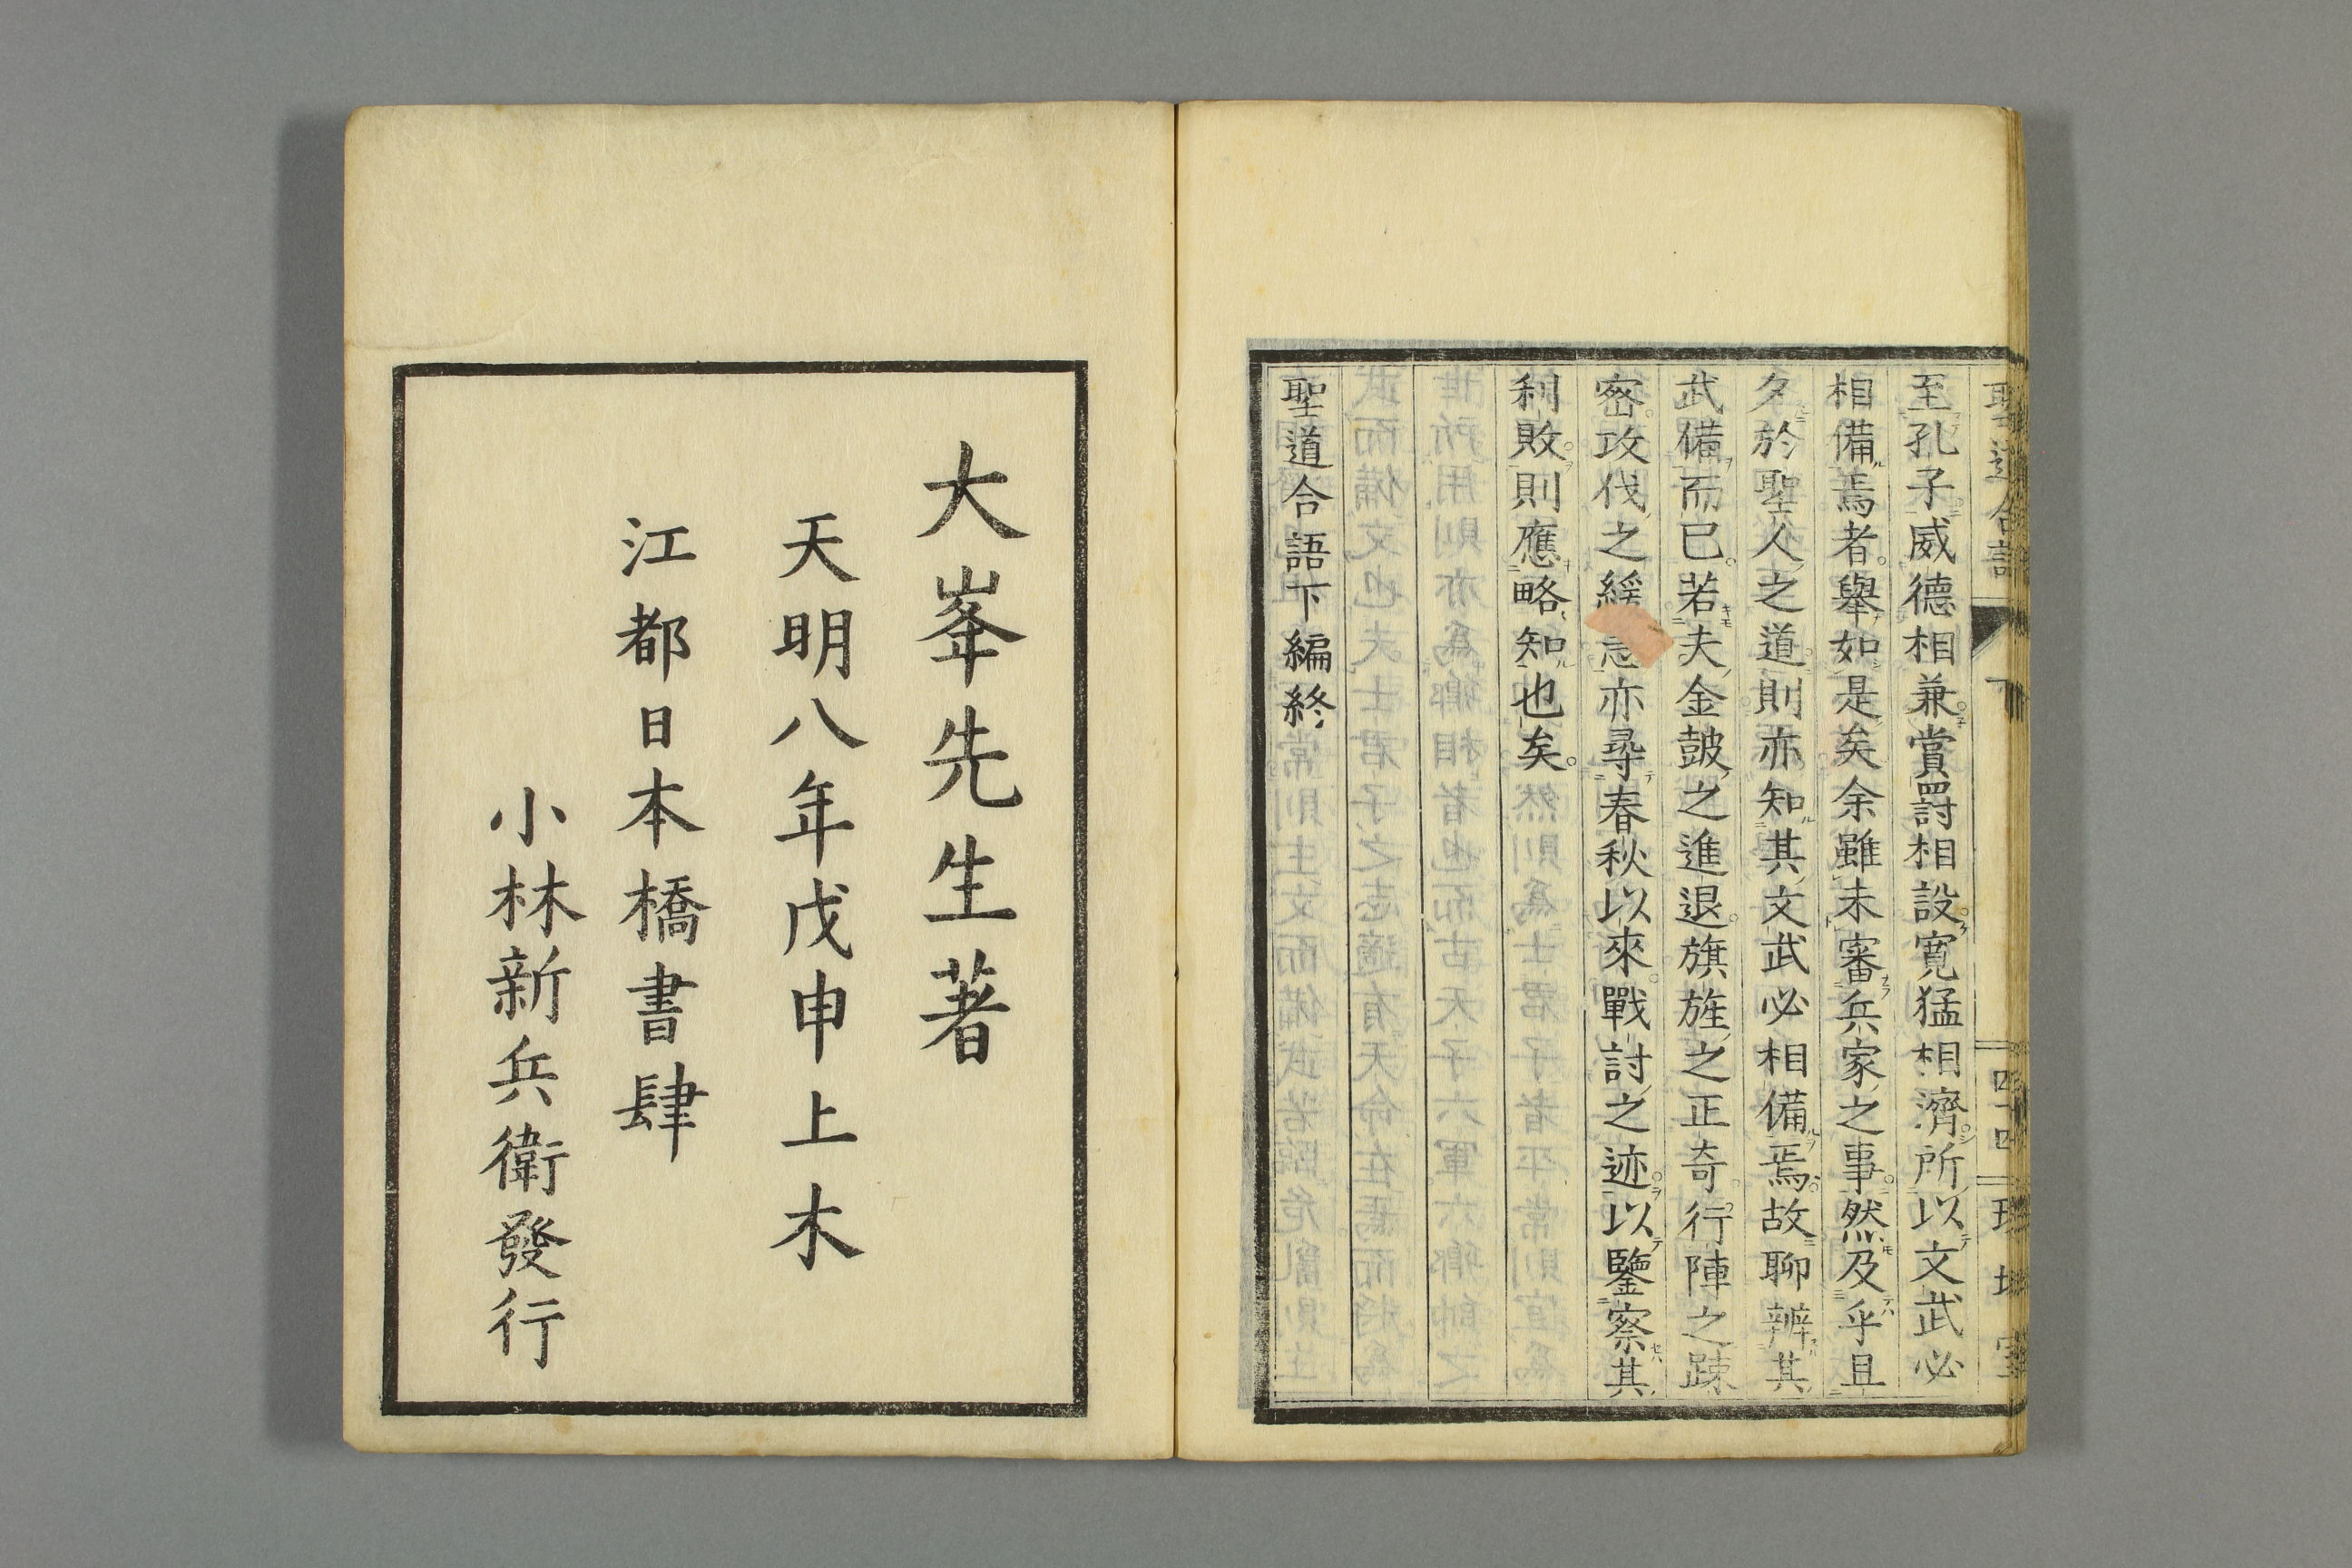 聖道合語 下 四十四
至孔子威德相兼賞罰相設寬猛相濟所以文武必
相備焉者舉如是矣余雖未審兵家之事然及乎且
夕於聖人之道則亦知其文武必相備焉故聊辨其
武備而已若夫金鼓之進退旗旌之正奇行陣之疎
密攻伐之緩急亦尋春秋以來戰討之迹以鑒察其
利敗則應略知也矣
聖道合語下編終
大峯先生著
天明八年戊申上木
江都日本橋書肆
小林新兵衛發行